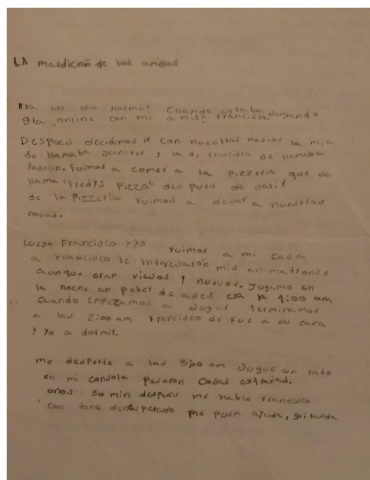 LA maldición de los amigos
Era un dia normal Cuando estaba
gta online con mi amigo Francisco Jugando
Despues decidimos ir con nuestras novias la mia
se llamaba Jennifer y la de francisco se llamaba
fuimos a comer a la pizzeria que se
llama "Fredys Pizza" despues de salir
de la Pizzeria fuimos a dejar a nuestras
novias.
Luego Francisco y yo fuimos a mi casa
a francisco le interesaron mis animatronics
aunque eran viejos y nuevos. Jugamos en
la noche un poker de ases era la 1:00 am
Cuando empezamos a Jugar terminamos
a las 2:00 am francisco se fue a su casa
y yo a dormir.
me desperte a las 3:00 am Jugue un rato
en mi consola pasaron cosas extrañas.
unos 30 min despues me hablo francisco
con tono desesperado me pedia ayuda, gritando